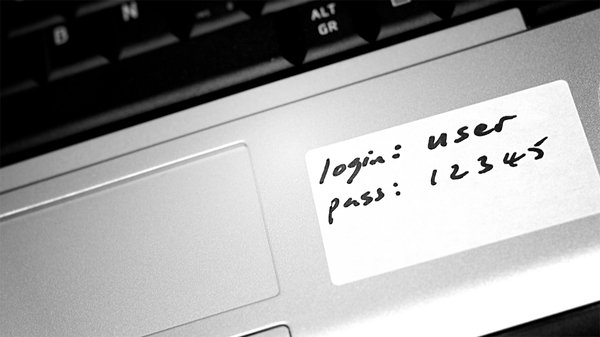 B N ALT
GR
login: user
pass: 12345